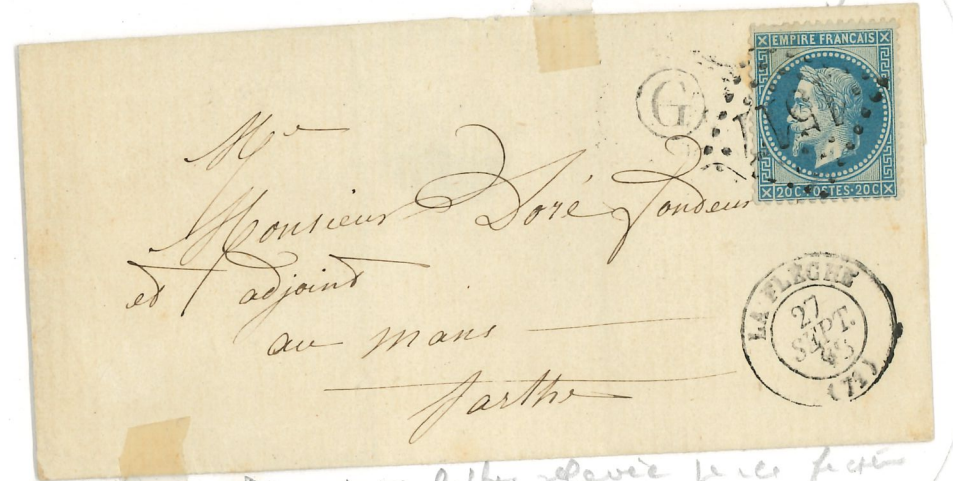 EMPIRE FRANCAIS
G
20 C POSTES 20 C
Mr
Monsieur Doré fondeur
et adjoint
au mans
Sarthe
LA FLÈCHE
27
SEPT.
(71)